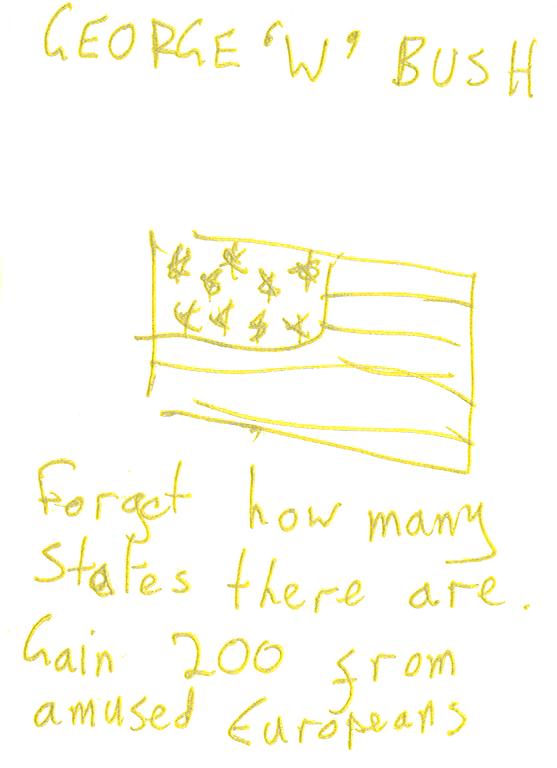 GEORGE 'W' BUSH
Forget how many
States there are.
Gain 200 from
amused Europeans